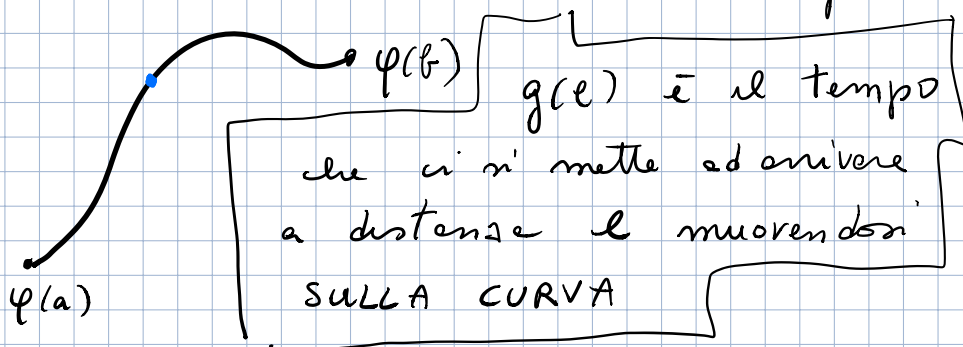 φ(b)
g(l) è il tempo
che ci si mette ad arrivare
a distanza l muovendosi
SULLA CURVA
φ(a)